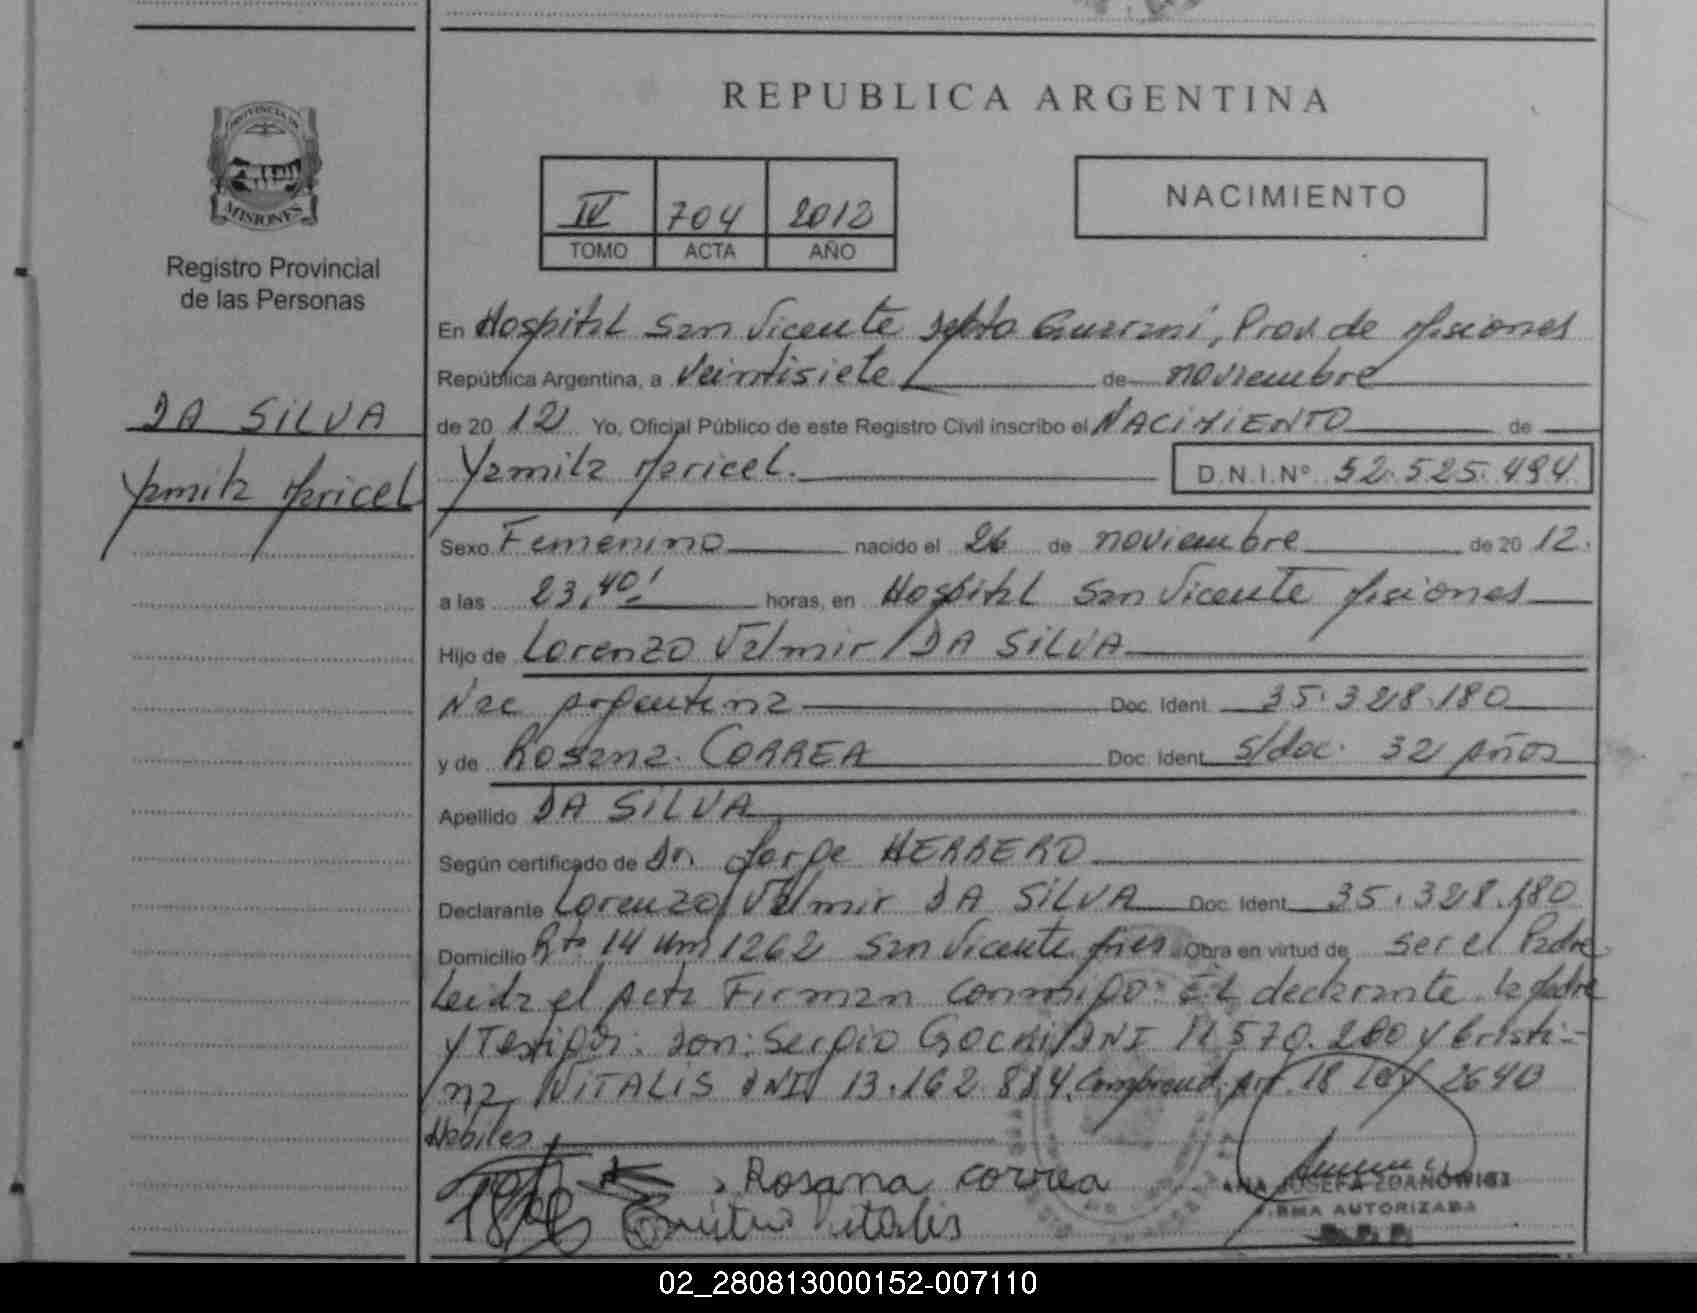 REPUBLICA ARGENTINA
PROVINCIA DE
MISIONES
Registro Provincial
de las Personas
IV 704 2012
TOMO ACTA AÑO
NACIMIENTO
DA SILVA
Yamila Maricel
En Hospital San Vicente Dpto Guaraní, Prov. de Misiones
República Argentina, a Veintisiete de noviembre
de 20 12 Yo, Oficial Público de este Registro Civil inscribo el NACIMIENTO de
Yamila Maricel. D.N.I.Nº 52.525.494
Sexo Femenino nacido el 26 de noviembre de 20 12.
a las 23,40' horas, en Hospital San Vicente Misiones
Hijo de Lorenzo Valmir DA SILVA
Nac Argentina Doc. Ident. 35.328.180
y de Rosana. CORREA Doc. Ident. s/doc. 32 Años
Apellido DA SILVA
Según certificado de Dr. Jorge HERRERO
Declarante Lorenzo Valmir DA SILVA Doc. Ident. 35.328.180
Domicilio Rta 14 Km 1262 San Vicente Mnes Obra en virtud de ser el Padre
Leida el Acta Firman conmigo: El declarante la Madre
y Testigos: Don: Sergio DNI 570.280 y Cristi-
na VITALIS DNI 13.162.884. Comprend. Art. 18 Ley 2640
Habiles
Rosana correa
Vitalis
ANA JOSEFA ZDANOWICZ
FIRMA AUTORIZADA
02_280813000152-007110